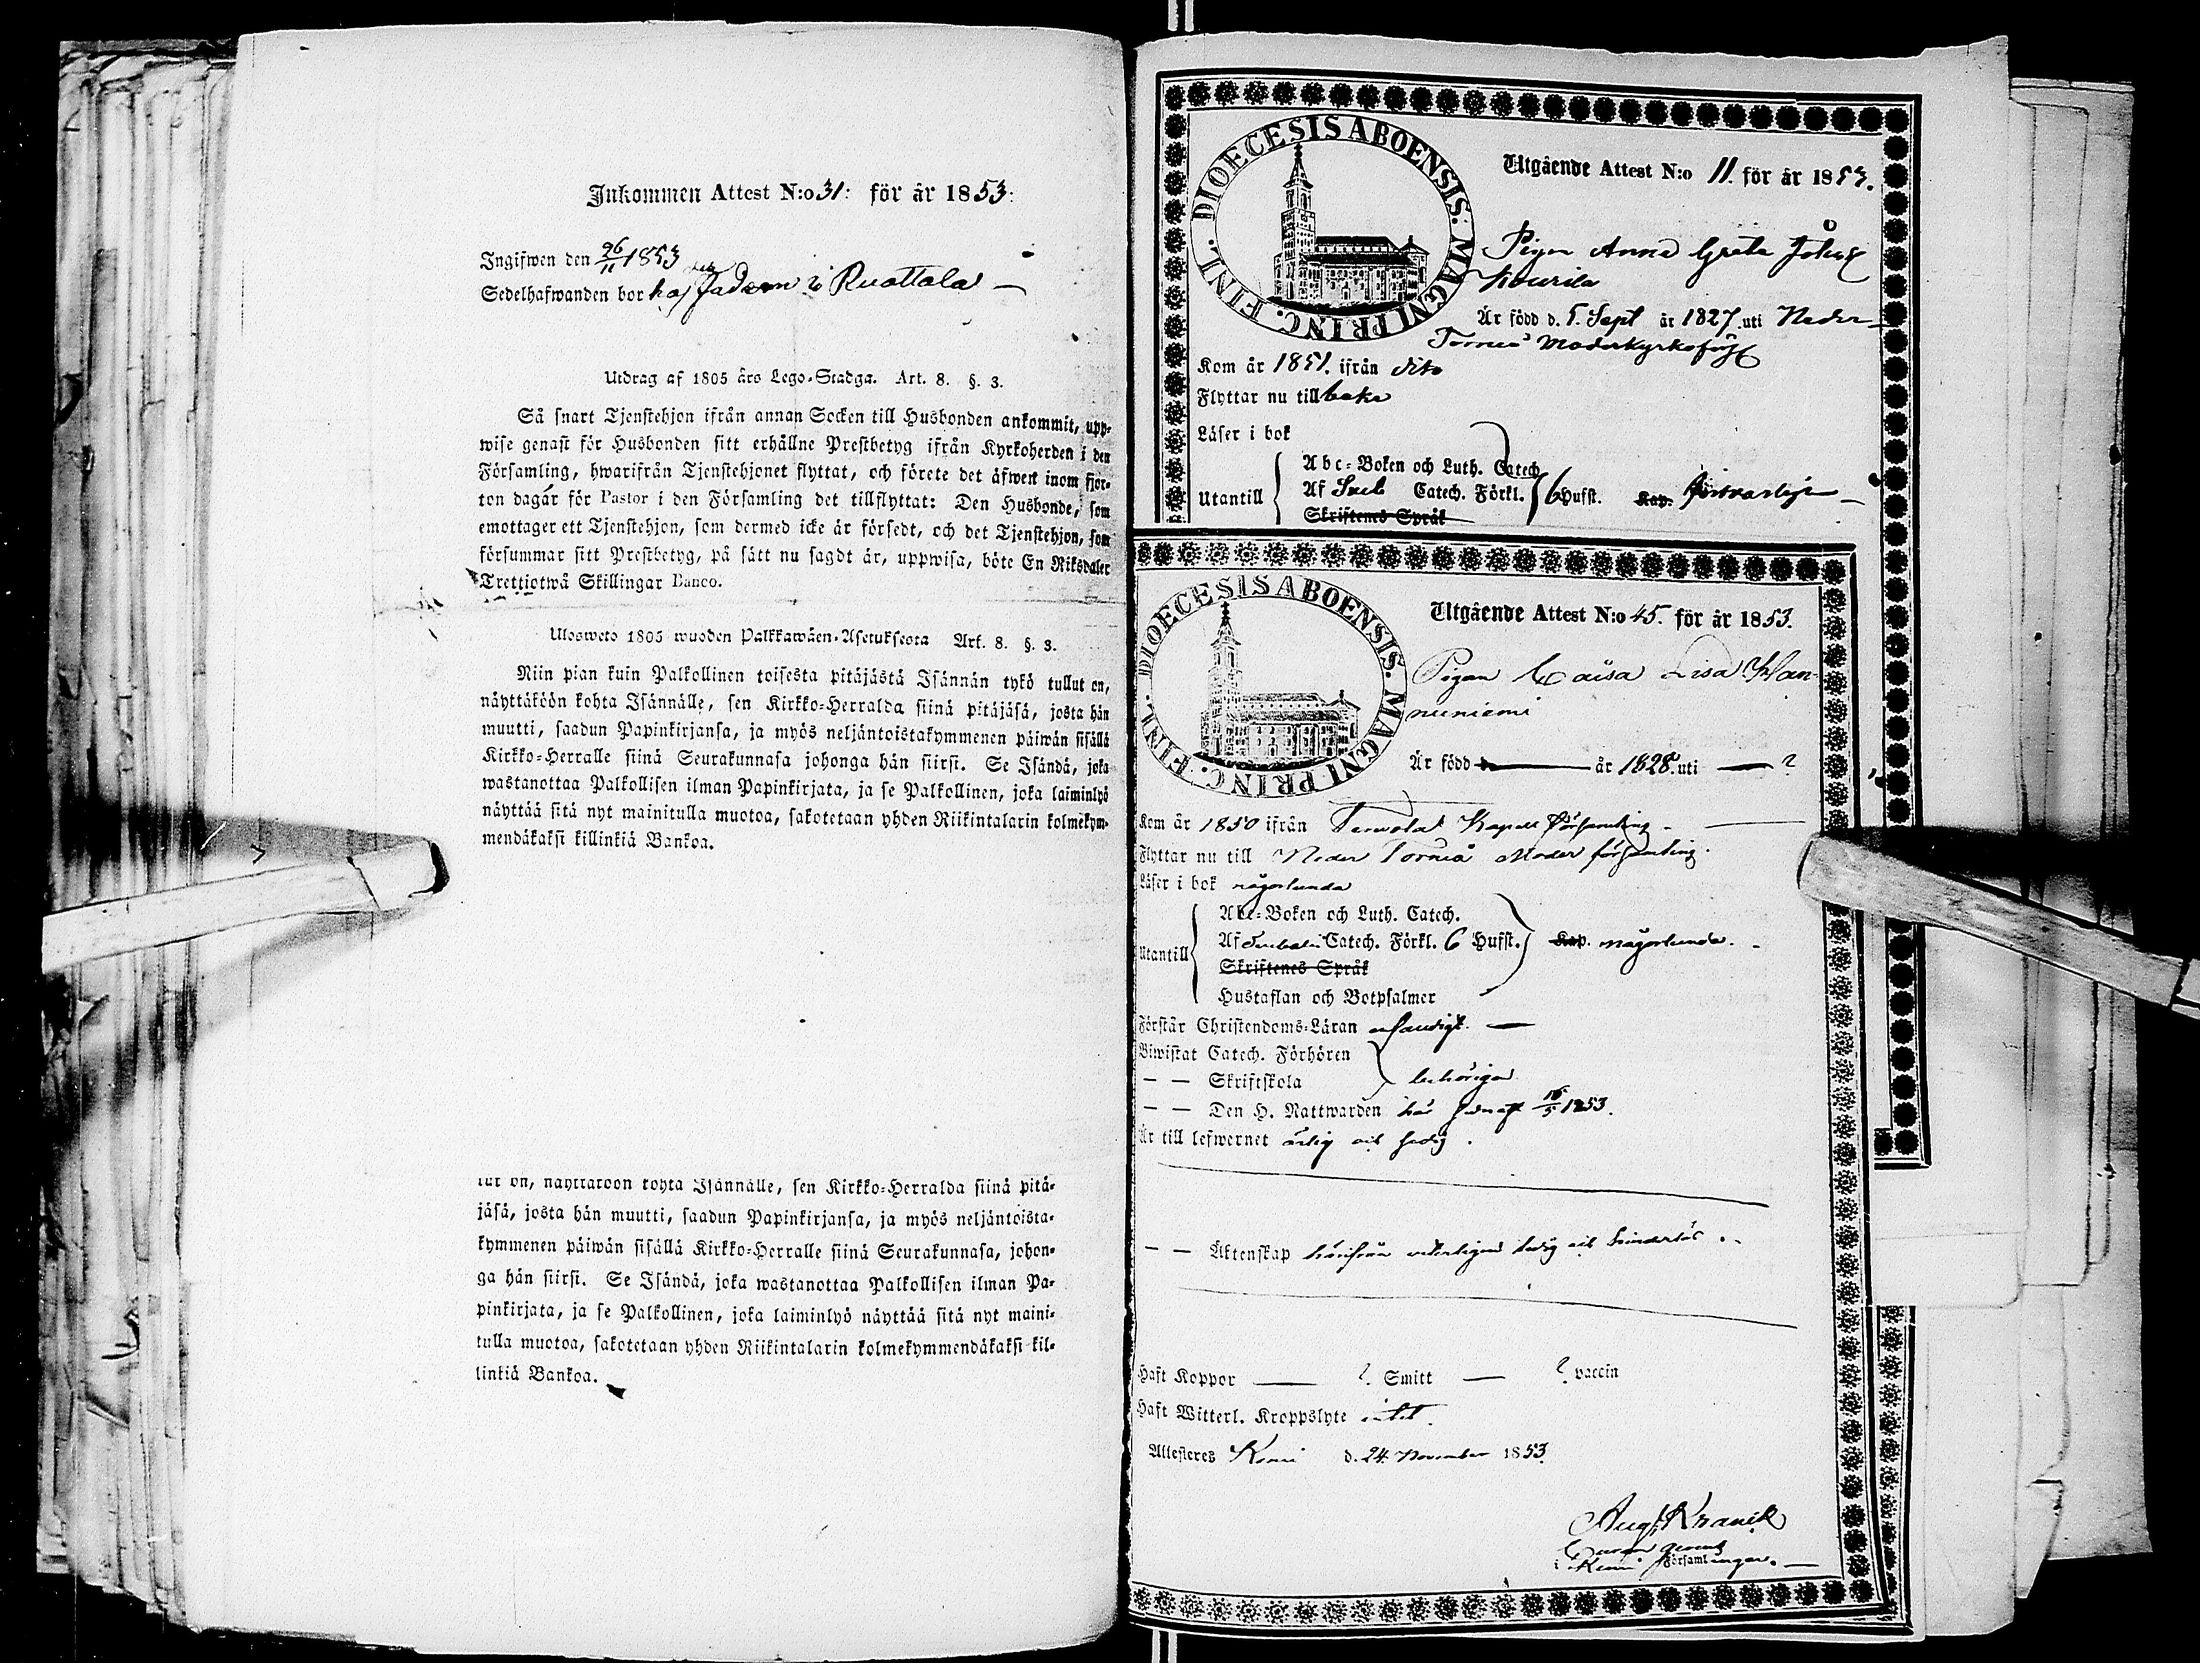 Inkommen Attest N:o 31: för år 1853:
Ingifwen den 26/11 1853
Sedelhafwanden bor hos fadern i Ruottala —
Utdrag af 1805 års Lego-Stadga. Art. 8. §. 3.
Så snart Tjenstehjon ifrån annan Socken till Husbonden ankommit, upp-
wise genast för Husbonden sitt erhållne Prestbetyg ifrån Kyrkoherden i den
Församling, hwarifrån Tjenstehjonet flyttat, och förete det äfwen inom fjor-
ton dagar för Pastor i den Församling det tillflyttat: Den Husbonde, som
emottager ett Tjenstehjon, som dermed icke är försedt, och det Tjenstehjon, som
försummar sitt Prestbetyg, på sätt nu sagdt är, uppwisa, böte En Riksdaler
Trettiotwå Skillingar Banco.
Ulosweto 1805 wuoden Palkkawäen-Asetuksesta Art. 8. §. 3.
Niin pian kuin Palkollinen toisesta pitäjästä Isännän tykö tullut on,
näyttäköön kohta Isännälle, sen Kirkko-Herralda siinä pitäjäsä, josta hän
muutti, saadun Papinkirjansa, ja myös neljäntoistakymmenen päiwän sisällä
Kirkko-Herralle siinä Seurakunnasa johonga hän siirsi. Se Isändä, joka
wastanottaa Palkollisen ilman Papinkirjata, ja se Palkollinen, joka laiminlyö
näyttää sitä nyt mainitulla muotoa, sakotetaan yhden Riikintalarin kolmekym-
mendäkaksi killinkiä Bankoa.
tut on, näyttäköön kohta Isännälle, sen Kirkko-Herralda siinä pitä-
jäsä, josta hän muutti, saadun Papinkirjansa, ja myös neljäntoista-
kymmenen päiwän sisällä Kirkko-Herralle siinä Seurakunnasa, johon-
ga hän siirsi. Se Isändä, joka wastanottaa Palkollisen ilman Pa-
pinkirjata, ja se Palkollinen, joka laiminlyö näyttää sitä nyt maini-
tulla muotoa, sakotetaan yhden Riikintalarin kolmekymmendäkaksi kil-
linkiä Bankoa.
DIOECESIS ABOENSIS. MAGNI PRINC. FINL.
Utgående Attest N:o 11. för år 1853.
Pigan Anna Greta Johsd
Kourila
Är född d. 5. Sept år 1827. uti Neder-
Torneå Moderkyrkoförs
Kom år 1851. ifrån dito
Flyttar nu tillbaka
Läser i bok
Abc-Boken och Luth. Catech.
Utantill Af Sveb Catech. Förkl. 6 Hufst. Kap. försvarligen —
Skriftenes Språk
DIOECESIS ABOENSIS. MAGNI PRINC. FINL.
Utgående Attest N:o 45. för år 1853.
Pigan Caisa Lisa Han-
nuniemi
Är född — år 1828. uti — ?
Kom år 1850 ifrån Tervola Kapell Församling. —
Flyttar nu till Neder Torneå Moder församling.
Läser i bok någorlunda
Abc-Boken och Luth. Catech.
Utantill Af Svebelii Catech. Förkl. 6 Hufst. Kap. någorlunda.
Skriftenes Språk
Hustaflan och Botpsalmer
Förstår Christendoms-Läran enfaldigt. —
Biwistat Catech. Förhören
— — Skriftskola behörigen
— — Den H. Nattwarden här sednast 16/5 1853.
Är till lefwernet ärlig och sedig.
— — Äktenskap härifrån veterligen ledig och hinderlös.
Haft Koppor — ?. Smitt — ?. vaccin
Haft Witterl. Kroppslyte intet.
Attesteres Kemi d. 24 November 1853.
Aug. Kranck
i Kemi Församlingar. —